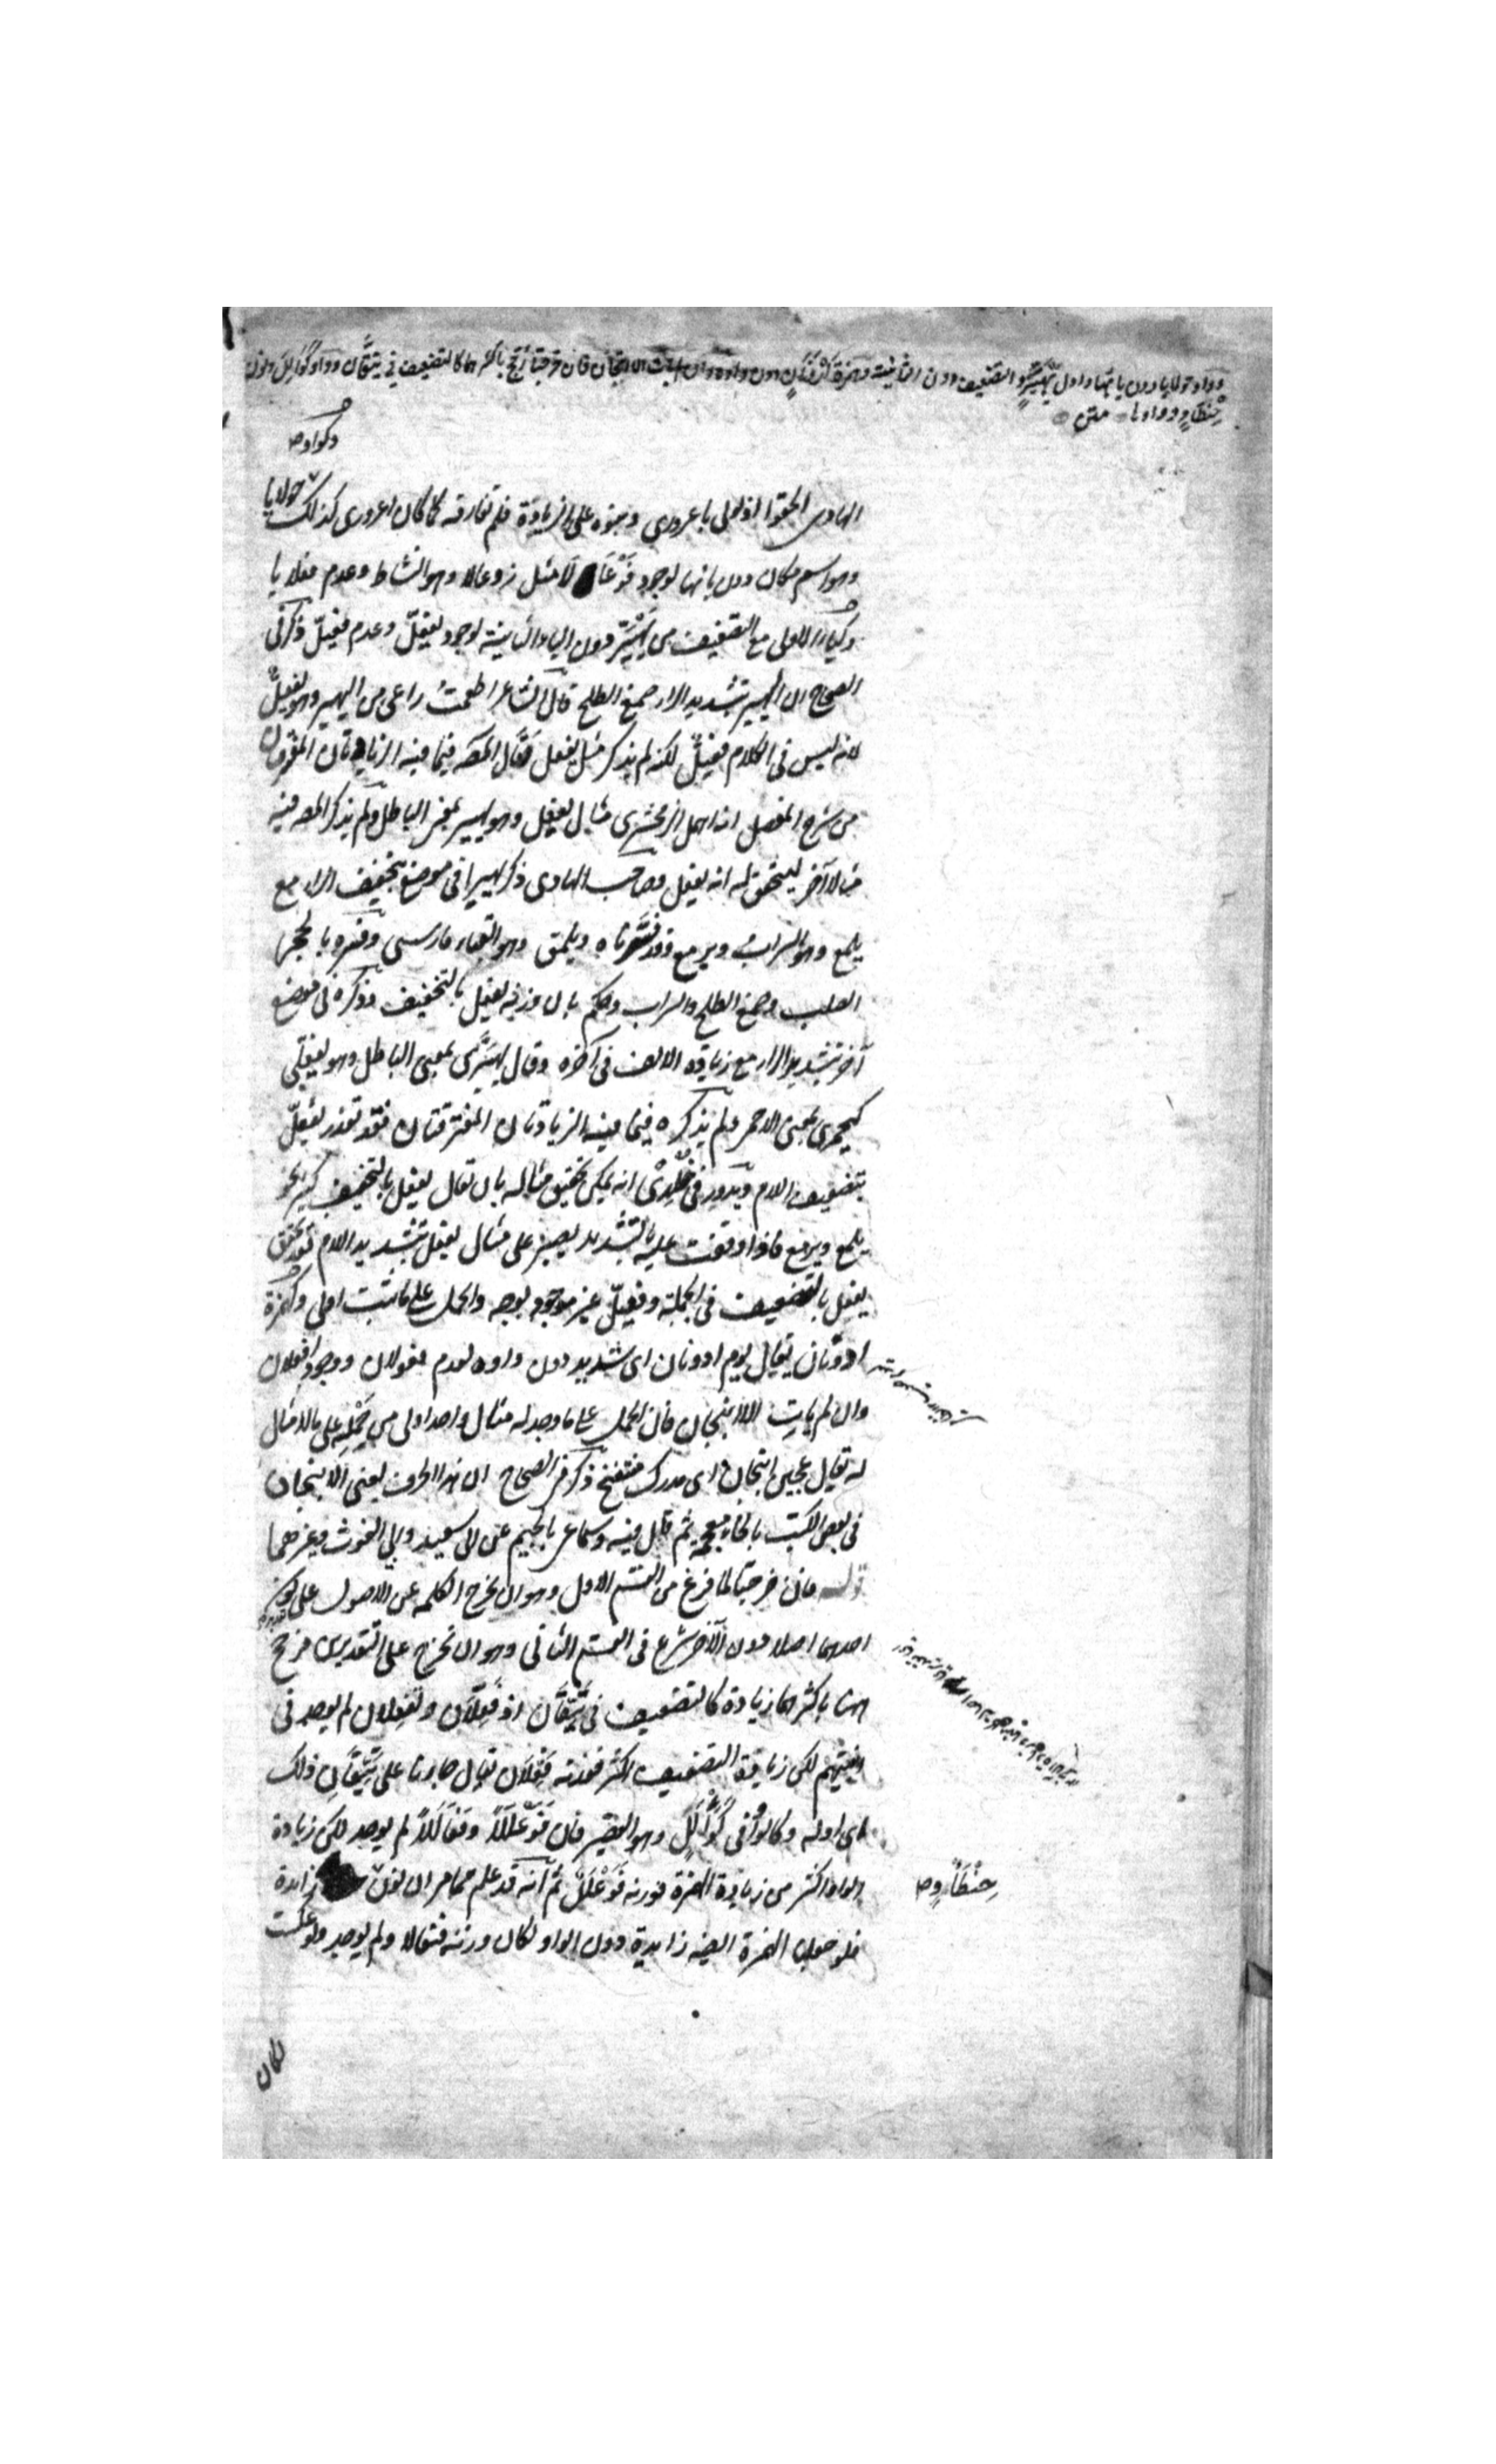 وواو حولايا دون يائها واول يهير والتضعيف دون الثانية وهمزة ارونان دون واوه وان لم يأت الا انبجان فان خرجتا رجح باكثرهما كالتضعيف في تئقان وواو كوألل ونون
حنطأو وواوها متن
وكواو
الهادى الحقوا اذلولى باعرورى وبنوه على الزيادة فلم تفارقه كما كان اعرورى كذلك حولايا
وهو اسم مكان دون يائها لوجود فوعالا مثل زوعالا وهو النشاط وعدم فعلايا
وكياء الاولى مع التضعيف من يهير دون الياء الثانية لوجود يفعلّ وعدم فعيلّ ذكر فى
الصحاح ان اليهير بتشديد الراء صمغ الطلح قال الشاعر اطعمت راعى من اليهير وهو يفعلّ
لانه ليس فى الكلام فعيلّ لكنه لم يذكر مثل يفعل فقال المصنف فيما فيه الزيادتان المفترقتان
من شرح المفصل انه اهمل الزمخشرى مثال يفعل وهو يهير بمعنى الباطل ولم يذكر المصنف فيه
مثالا آخر ليتحقق له انه يفعل وصاحب الهادى ذكر يهيرا فى موضع بتخفيف الراء مع
يلمع وهو السراب ويرمع وقد فسرناه ويلمق وهو القباء فارسى وفسره بالحجر
الصلب وصمغ الطلح والسراب وحكم بان وزنه يفعل بالتخفيف وذكره فى موضع
آخر بتشديد الراء مع زيادة الالف فى آخره وقال يهيرى بمعنى الباطل وهو يفعلى
كيحمرى بمعنى الاحمر ولم يذكره فيما فيه الزيادتان المفترقتان فقد تعذر يفعلّ
بتضعيف اللام ويدور فى خلدى انه يمكن تحقيق مثاله بان تقال يفعل بالتخفيف كثير نحو
يلمع ويرمع فاذا وقفت عليه بالتشديد يصير على مثال يفعل بتشديد اللام فقد تحقق
يفعل بالتضعيف فى الجملة وفعيلّ غير موجود بوجه والحمل على ما ثبت اولى وكهمزة
ارونان يقال يوم ارونان اى شديد دون واوه لعدم فعولان ووجود افعلان
وان لم يأت الا انبجان فان الحمل على ما وجد له مثال واحد اولى من حمله على ما لا مثال
له يقال عجين انبجان اى مدرك منتفخ ذكر فى الصحاح ان هذا الحرف يعنى الانبجان
فى بعض الكتب بالخاء معجمة ثم قال فيه وسماعى بالجيم عن ابى سعيد وابى الغوث وغيرهما
قوله فان خرجتا لما فرغ من القسم الاول وهو ان يخرج الكلمة عن الاصول على تقدير كون
احدهما اصلا دون الآخر شرع فى القسم الثانى وهو ان تخرج على التقديرين فرجح
ههنا باكثرهما زيادة كالتضعيف فى تئقان اذ فعلان وتفعلان لم يوجد فى
ابنيتهم لكن زيادة التضعيف اكثر فوزنه فعلان يقال جاءنا على تئقان ذلك
اى اوله وكالواو فى كوألل وهو القصير فان فوعللا وفعأللا لم يوجد لكن زيادة
الواو اكثر من زيادة الهمزة فوزنه فوعلل ثم انه قد علم مما مر ان نون زائدة
حنطأو
فلو جعلت الهمزة ايضا زايدة دون الواو لكان وزنه فنعألا ولم يوجد ولو عكست
لكان